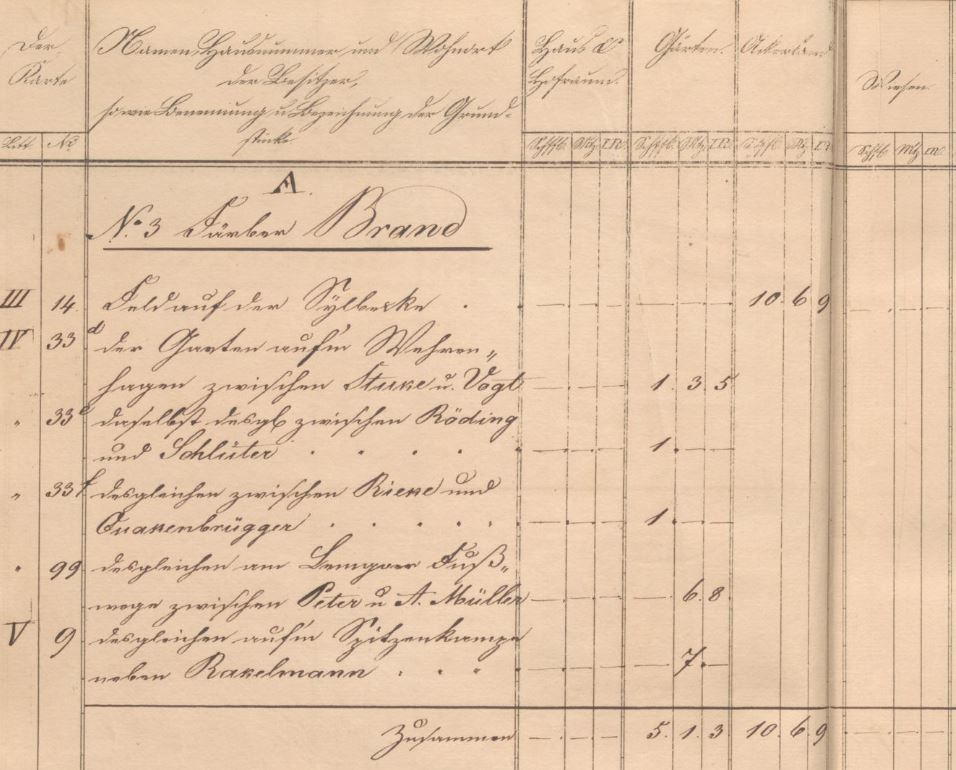 Der Karte
Litt. No.
Namen, Hausnummer und Wohnort
der Besitzer,
sowie Benennung u Bezeichnung der Grund-
stücke.
Haus &
Hofraum.
Gärten.
Ackerland
Wiesen.
Schffl. Mtz □R. Schffl. Mtz □R. Schffl. Mtz □R. Schffl. Mtz □R.
A.
No. 3 Färber Brand
III 14. Feld auf der Sylbecke . . 10. 6. 9
IV 33 d der Garten auf'm Wehren„
hagen zwischen Stuke u. Vogt 1. 3. 5
" 33 e daselbst desgl. zwischen Röding
und Schlüter . . . . . . 1. — —
" 33 f desgleichen zwischen Rieke und
Quakenbrügger . . . . . . 1. — —
" 99 desgleichen am Lemgoer Fuß„
wege zwischen Peter u A. Müller 6. 8.
V 9 desgleichen auf'm Spitzenkampe
neben Rakelmann . . . . 7. —
Zusammen — — — 5. 1. 3 10. 6. 9